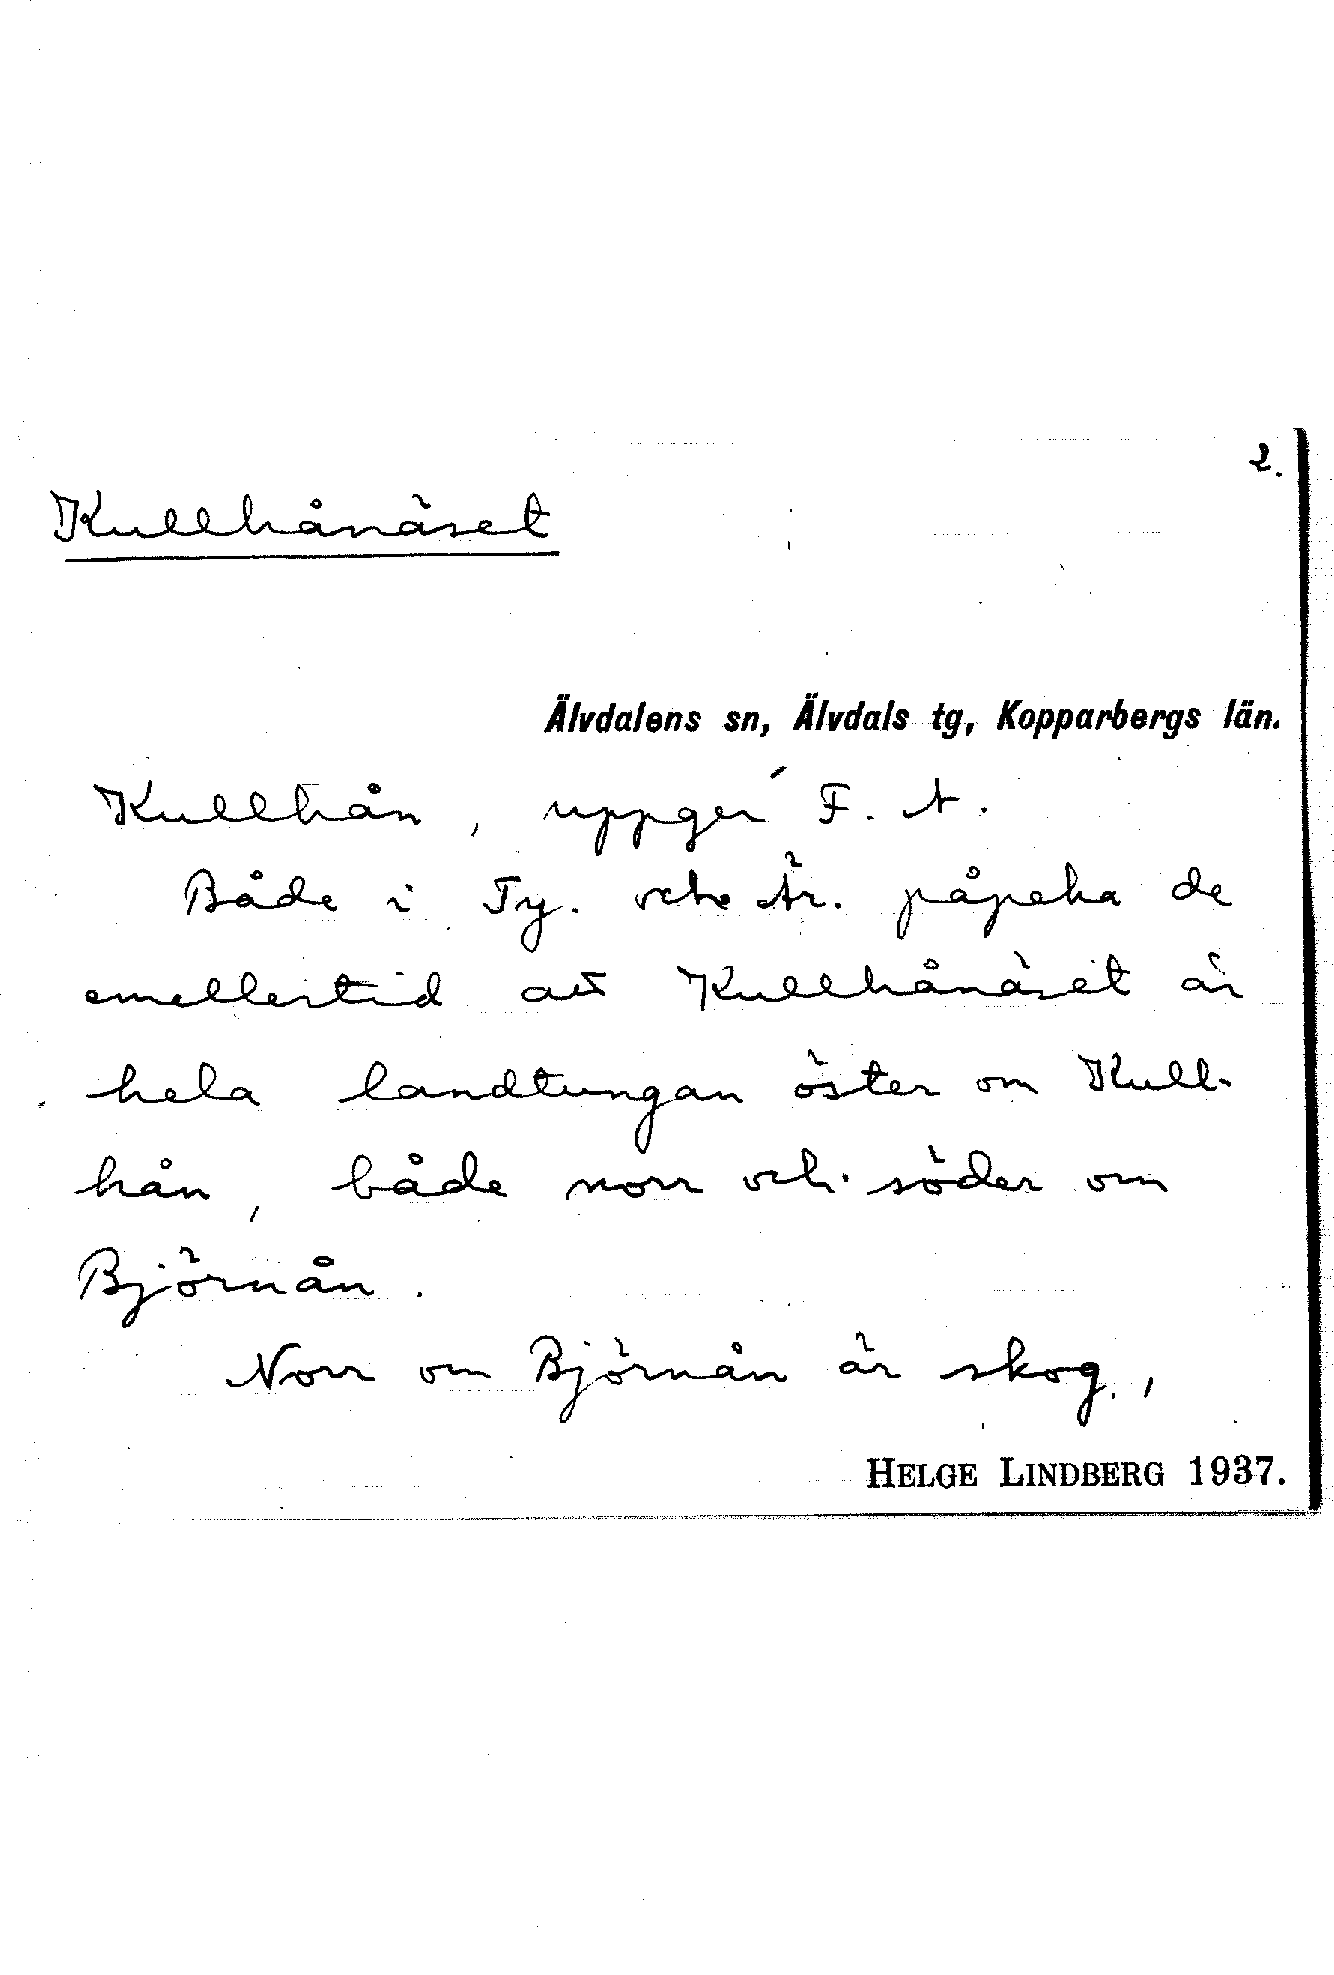 2.
Kullhånäset
Älvdalens sn, Älvdals tg, Kopparbergs län.
Kullhån, uppger F. A.
Både i Ty. och Är. påpeka de
emellertid att Kullhånäset är
hela landtungan öster om Kull-
hån, både norr och söder om
Björnån.
Norr om Björnån är skog,
HELGE LINDBERG 1937.